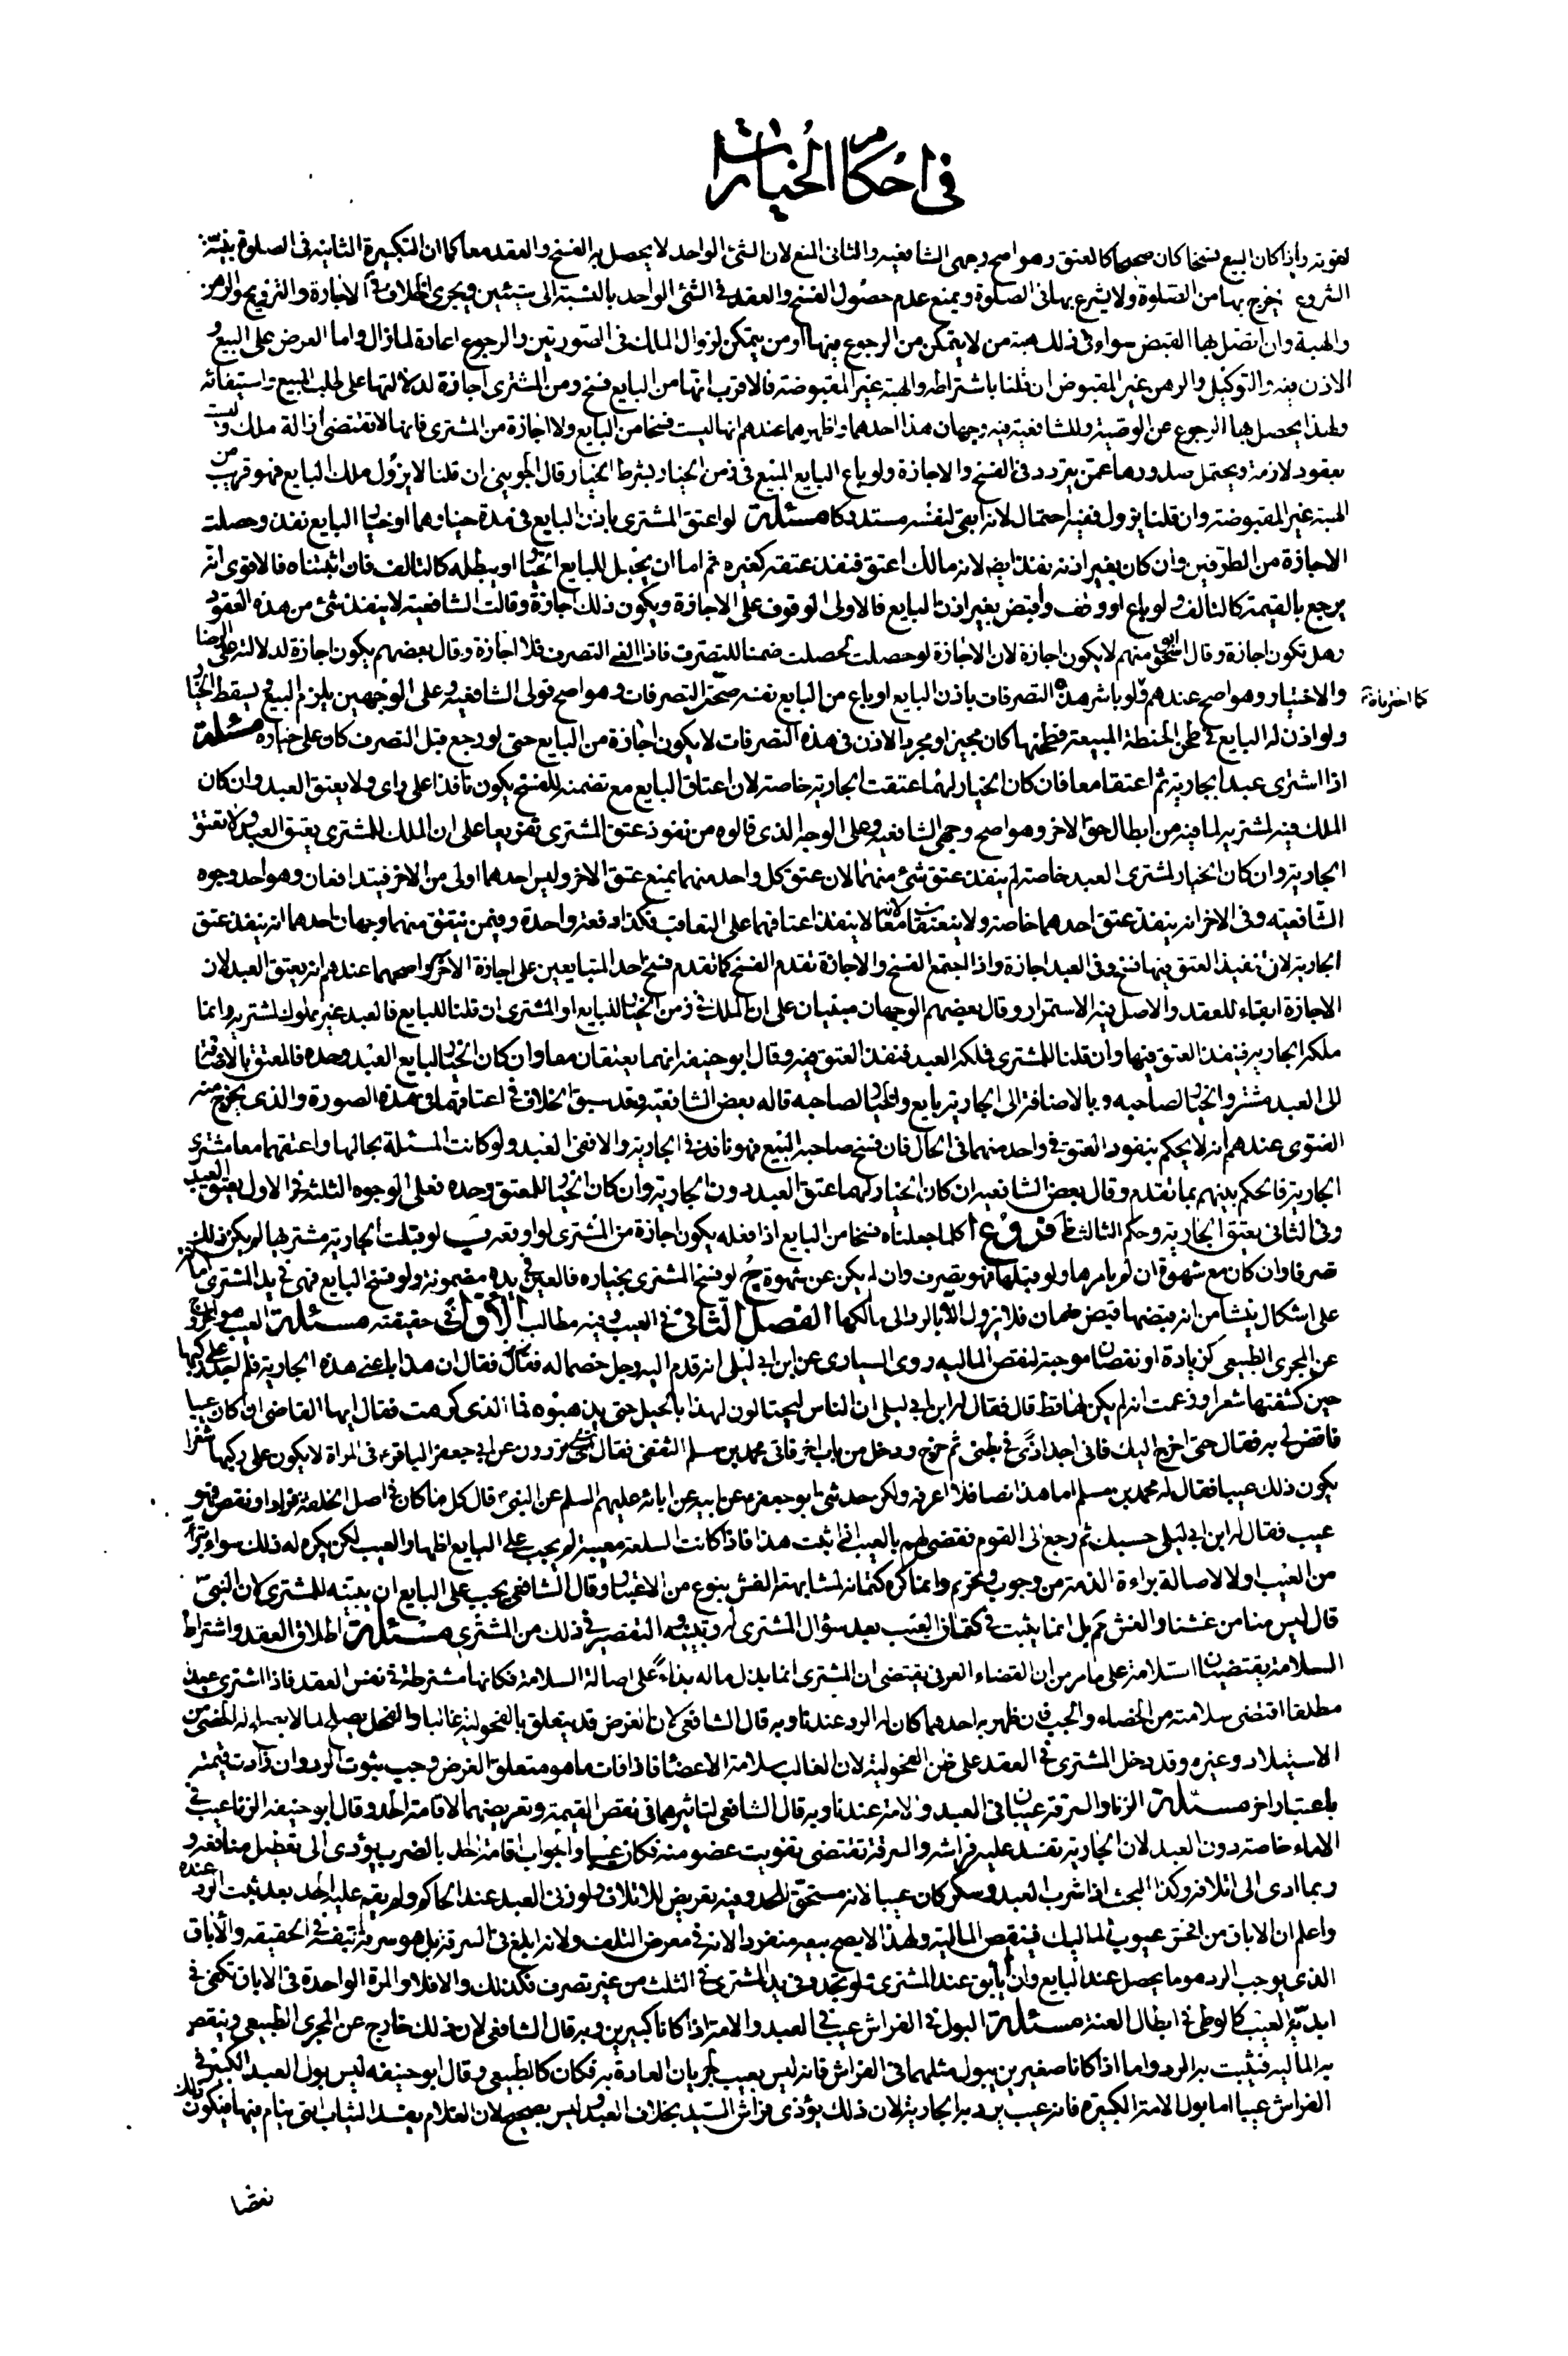 في احكام الخيارات
لقوته واذا كان البيع فسخا كان صحيحا كالعتق وهو اصح وجهى الشافعيه والثانى المنع لان الشئ الواحد لا يحصل به الفسخ والعقد معا كما ان التكبيرة الثانيه فى الصلوة بنيّة
الشروع يخرج بها من الصلوة ولا يشرع بها فى الصلوة ويمنع عدم حصول الفسخ والعقد فى الشئ الواحد بالنسبة الى شيئين ويجرى الخلاف فى الاجارة والتزويج والرهن
والهبة وان اتصل بها القبض سواء فى ذلك هبة من لا يتمكن من الرجوع فيها او من يتمكن لزوال الملك فى الصورتين والرجوع اعادة لما زال واما العرض على البيع و
الاذن فيه والتوكيل والرهن غير المقبوض ان قلنا باشتراطه والهبة غير المقبوضه فالاقرب انها من البايع فسخ ومن المشترى اجازة لدلالتها على طلب المبيع واستيفائه
ولهذا يحصل بها الرجوع عن الوصية وللشافعية فيه وجهان هذا احدهما واظهرهما عندهم انها ليست فسخا من البايع ولا اجازة من المشترى فانها لا تقتضى ازالة ملك وليست
بعقود لازمة ويحتمل صدورها عمن يتردد فى الفسخ والاجازة ولو باع البايع المبيع فى زمن الخيار بشرط الخيار قال الجوينى ان قلنا لا يزول ملك البايع فهو قريب من
الهبة غير المقبوضه وان قلنا يزول ففيه احتمال لانه ابقى لنفسه مستدركا مسئلة لو اعتق المشترى باذن البايع فى مدة خيارهما او خيار البايع نفذ وحصلت
الاجازة من الطرفين وان كان بغير اذنه نفذ ايضا لانه مالك اعتق فنفذ عتقه كغيره ثم اما ان يجعل للبايع الخيار او يبطله كالتالف فان اثبتناه فالاقوى انه
يرجع بالقيمة كالتالف ولو باع او وقف واقبض بغير اذن البايع فالاولى الوقوف على الاجازة ويكون ذلك اجازة وقالت الشافعية لا ينفذ شئ من هذه العقود
وهل تكون اجازة وقال ابو اسحق منهم لا يكون اجازة لان الاجازة لو حصلت لحصلت ضمنا للتصرف فاذا الغى التصرف فلا اجازة وقال بعضهم يكون اجازة لدلالته على الرضا
والاختيار وهو اصح عندهم كما اخترناه فلو باشر هذه التصرفات باذن البايع او باع من البايع نفسه صحّت التصرفات وهو اصح قولى الشافعيه وعلى الوجهين يلزم البيع ويسقط الخيار
ولو اذن له البايع فى طحن الحنطة المبيعة فطحنها كان مجيزا ومجرد الاذن فى هذه التصرفات لا يكون اجازة من البايع حتى لو رجع قبل التصرف كان على خياره مسئلة
اذا اشترى عبدا بجارية ثم اعتقا معا فان كان الخيار لهما اعتقت الجارية خاصة لان اعتاق البايع مع تضمنه للفسخ يكون نافذا على راى ولا يعتق العبد وان كان
الملك فيه لمشتريه لما فيه من ابطال حق الاخر وهو اصح وجهى الشافعيه وعلى الوجه الذى قالوه من نفوذ عتق المشترى تفريعا على ان الملك للمشترى يعتق العبد ولا تعتق
الجارية وان كان الخيار لمشترى العبد خاصة لم ينفذ عتق شئ منهما لان عتق كل واحد منهما يمنع عتق الاخر وليس احدهما اولى من الاخر فيتدافعان وهو احد وجوه
الشافعيه وفى الاخر انه ينفذ عتق احدهما خاصة ولا ينعتقان معا لانه لا ينفذ اعتاقهما على التعاقب فكذا دفعة واحدة وفيمن ينعتق منهما وجهان احدهما انه ينفذ عتق
الجارية لان تنفيذ العتق فيها فسخ وفى العبد اجازة واذا اجتمع الفسخ والاجازة تقدم الفسخ كما تقدم فسخ احد المتبايعين على اجازة الاخر واصحهما عندهم انه يعتق العبد لان
الاجازة ابقاء للعقد والاصل فيه الاستمرار وقال بعضهم الوجهان مبنيان على ان الملك فى زمن الخيار للبايع او المشترى ان قلنا للبايع فالعبد غير مملوك لمشتريه وانما
ملكه الجارية فينفذ العتق فيها وان قلنا للمشترى فملكه العبد فنفذ العتق فيه وقال ابو حنيفه انهما يعتقان معا وان كان الخيار لبايع العبد وحده فالمعتق بالاضافة
الى العبد مشتر والخيار لصاحبه وبالاضافة الى الجارية بايع والخيار لصاحبه قاله بعض الشافعية وقد سبق الخلاف فى اعتاقهما فى هذه الصورة والذى يخرج منه
الفتوى عندهم انه لا يحكم بنفوذ العتق فى واحد منهما فى الحال فان فسخ صاحبه البيع فهو نافذ فى الجارية والا ففى العبد ولو كانت المسئلة بحالها واعتقهما معا مشترى
الجارية فالحكم بينهم بما تقدم وقال بعض الشافعيه ان كان الخيار لهما عتق العبد دون الجارية وان كان الخيار للمعتق وحده فعلى الوجوه الثلثة ففى الاول يعتق العبد
وفى الثانى يعتق الجارية وحكم الثالث ظ فروع ا كلما جعلناه فسخا من البايع اذا فعله يكون اجازة من المشترى لو اوقعه ب لو قبلت الجارية مشتريها لم يكن ذلك
تصرفا وان كان مع شهوة ان لم يامرها ولو قبلها فهو تصرف وان لم يكن عن شهوة ج لو فسخ المشترى بخياره فالعين فى يده مضمونة ولو فسخ البايع فهى فى يد المشترى امانة
على اشكال ينشا من انه قبضها قبض ضمان فلا يزول الا بالرد الى مالكها الفصل الثانى فى العيب وفيه مطالب الاول فى حقيقته مسئلة العيب هو الخروج
عن المجرى الطبيعى كزيادة او نقصان موجبة لنقص الماليه روى السيارى عن ابن ابى ليلى انه قدم اليه رجل خصما له فقال ان هذا باعنى هذه الجارية فلم اجد على ركبها
حين كشفتها شعرا وزعمت انه لم يكن لها قط قال فقال له ابن ابى ليلى ان الناس ليحتالون لهذا بالحيل حتى يذهبوه فما الذى كرهت فقال ايها القاضى ان كان عيبا
فاقض لى به فقال حتى اخرج اليك فانى اجد اذى فى بطنى ثم خرج ودخل من باب اخر فاتى محمد بن مسلم الثقفى فقال اى شئ تروون عن ابى جعفر الباقر ع فى المراة لا يكون على ركبها شعرا
يكون ذلك عيبا فقال له محمد بن مسلم اما هذا نصا فلا اعرفه ولكن حدثنى ابو جعفر ع عن ابيه عن ابائه عليهم السلم عن النبى ص قال كل ما كان فى اصل الخلقة فزاد او نقص فهو
عيب فقال له ابن ابى ليلى حسبك ثم رجع الى القوم فقضى لهم بالعيب اذا ثبت هذا فاذا كانت السلعة معيبة لم يجب على البايع اظهار العيب لكن يكره له ذلك سواء تبرأ
من العيب او لا لاصالة براءة الذمة من وجوب وتحريم وانما كره كتمانه لمشابهته الغش بنوع من الاعتبار وقال الشافعى يجب على البايع ان يبينه للمشترى لان النبىّ
قال ليس منا من غشنا والغش ثم بل انما يثبت فى كتمان العيب بعد سؤال المشترى له وتبينه والتقصير فى ذلك من المشترى مسئلة اطلاق العقد واشتراط
السلامة يقتضيان السلامة على ما مر من ان القضاء العرفى يقتضى ان المشترى انما بذل ماله بناء على اصالة السلامة فكانها مشترطة فى نفس العقد فاذا اشترى عبدا
مطلقا اقتضى سلامته من الخصاء والجب فان ظهر به احدهما كان له الرد عندنا وبه قال الشافعى لان الغرض قد يتعلق بالفحولية غالبا والفحل يصلح لما لا يصلح له الخصى من
الاستيلاد وغيره وقد دخل المشترى فى العقد على ظن الفحولية لان الغالب سلامة الاعضا فاذا فات ما هو متعلق الغرض وجب ثبوت الرد وان زادت قيمته
باعتبار اخر مسئلة الزنا والسرقة عيبان فى العبد والامة عندنا وبه قال الشافعى لتاثيرهما فى نقص القيمة وتعريضهما لاقامة الحد وقال ابو حنيفه الزنا عيب فى
الاماء خاصة دون العبد لان الجارية تفسد عليه فراشه والسرقة تقتضى تفويت عضو منه فكان عيبا والجواب اقامة الحد بالضرب يؤدى الى تعطيل منافعه و
ربما ادى الى اتلافه وكذا البحث اذا شرب العبد وسكر كان عيبا لانه مستحق للحد وفيه تعريض للاتلاف ولو زنى العبد عند الحاكم ولم يقم عليه الحد بعد ثبت الرد عنده
واعلم ان الاباق من افحش عيوب المماليك فينقص الماليه ولهذا لا يصح بيعه منفردا لانه فى معرض التلف ولانه ابلغ فى السرقة بل هو سرقة نفسه فى الحقيقه والاباق
الذى يوجب الرد هو ما يحصل عند البايع وان لم يابق عند المشترى ولو تجدد فى يد المشترى فى الثلث من غير تصرف فكذلك والا فلا والمرة الواحدة فى الاباق تكفى فى
ابديّة العيب كالوطى فى ابطال العنة مسئلة البول فى الفراش عيب فى العبد والامة اذا كانا كبيرين وبه قال الشافعى لان ذلك خارج عن المجرى الطبيعى وينقص
به الماليه فيثبت به الرد واما اذا كانا صغيرين يبول مثلهما فى الفراش فانه ليس بعيب لجريان العادة به فكان كالطبيعى وقال ابو حنيفه ليس بول العبد الكبير فى
الفراش عيبا اما بول الامة الكبيرة فانه عيب يرد به الجارية لان ذلك يؤذى فراش السيد بخلاف العبد وليس بصحيح لان الغلام يفسد الثياب التى ينام فيها فيكون ذلك
نقصا